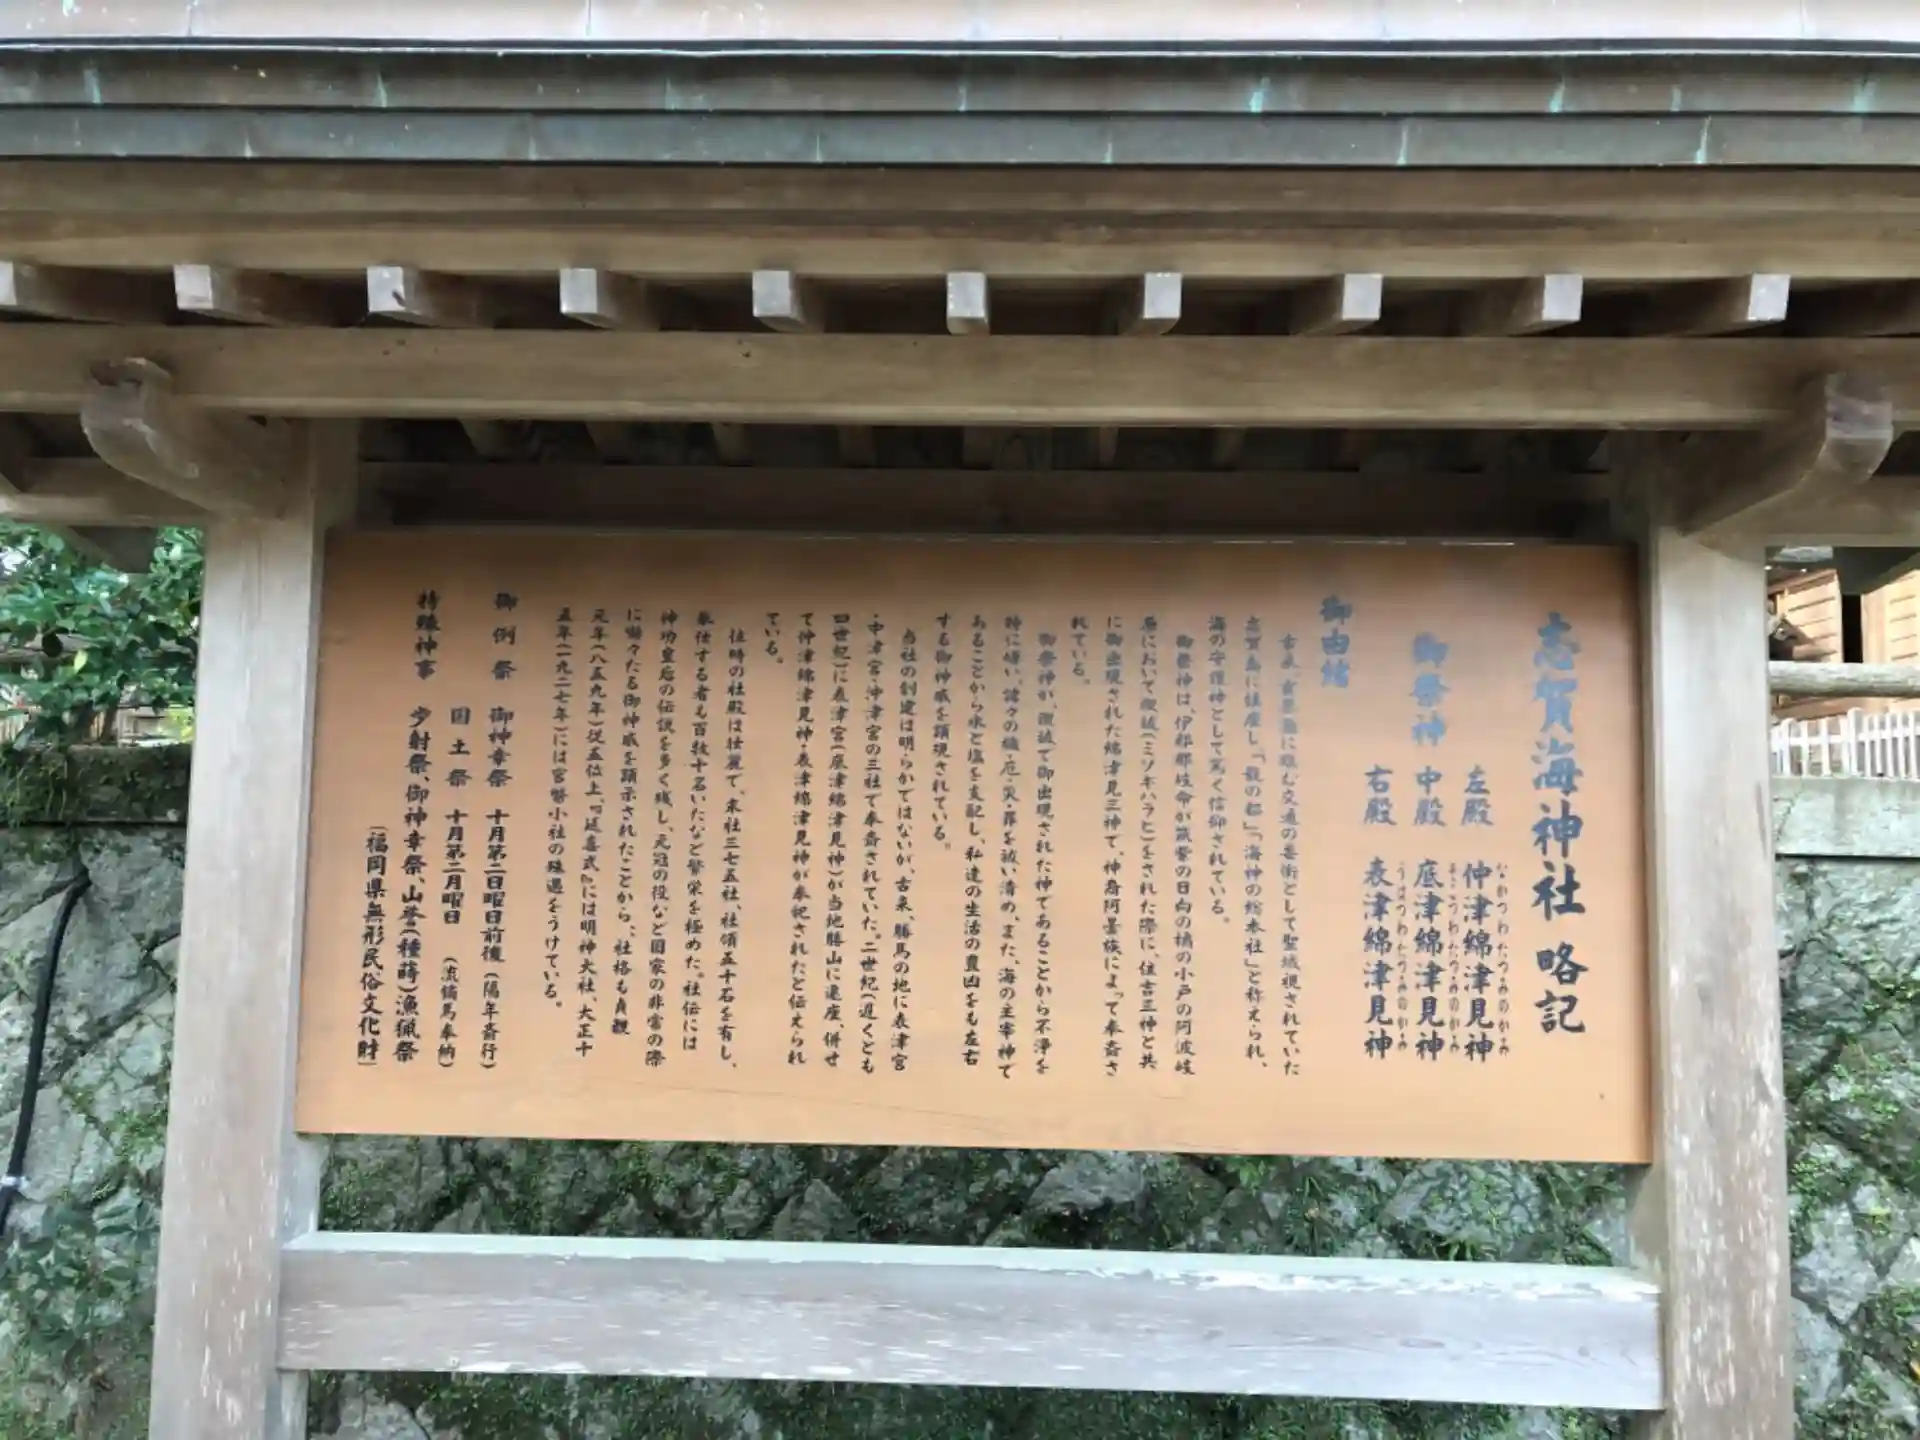 志賀海神社略記
御祭神
左殿 仲津綿津見神
なかつわたつみのかみ
中殿 底津綿津見神
そこつわたつみのかみ
右殿 表津綿津見神
うはつわたつみのかみ
御由緒
古来、玄界灘に臨む交通の要衝として聖域視されていた
志賀島に鎮座し、「龍の都」「海神の総本社」と称えられ、
海の守護神として篤く信仰されている。
御祭神は、伊邪那岐命が筑紫の日向の橘の小戸の阿波岐
原において禊祓(ミソギハラヒ)をされた際に、住吉三神と共
に御出現された綿津見三神で、神裔阿曇族によって奉斎さ
れている。
御祭神が、禊祓で御出現された神であることから不浄を
特に嫌い、諸々の穢・厄・災・罪を祓い清め、また、海の主宰神で
あることから水と塩を支配し、私達の生活の豊凶をも左右
する御神威を顕現されている。
当社の創建は明らかではないが、古来、勝馬の地に表津宮
・中津宮・沖津宮の三社で奉斎されていた。二世紀(遅くとも
四世紀)に表津宮(底津綿津見神)が当地勝山に遷座、併せ
て仲津綿津見神・表津綿津見神が奉祀されたと伝えられ
ている。
往時の社殿は壮麗で、末社三七五社、社領五十石を有し、
奉仕する者も百数十名いたなど繁栄を極めた。社伝には
神功皇后の伝説を多く残し、元寇の役など国家の非常の際
に赫々たる御神威を顕示されたことから、社格も貞観
元年(八五九年)従五位上、『延喜式』には明神大社、大正十
五年(一九二七年)には官幣小社の殊遇をうけている。
御例祭 御神幸祭 十月第二日曜日前後(隔年斎行)
国土祭 十月第二月曜日 (流鏑馬奉納)
特殊神事 歩射祭、御神幸祭、山誉(種蒔)漁猟祭
〔福岡県無形民俗文化財〕